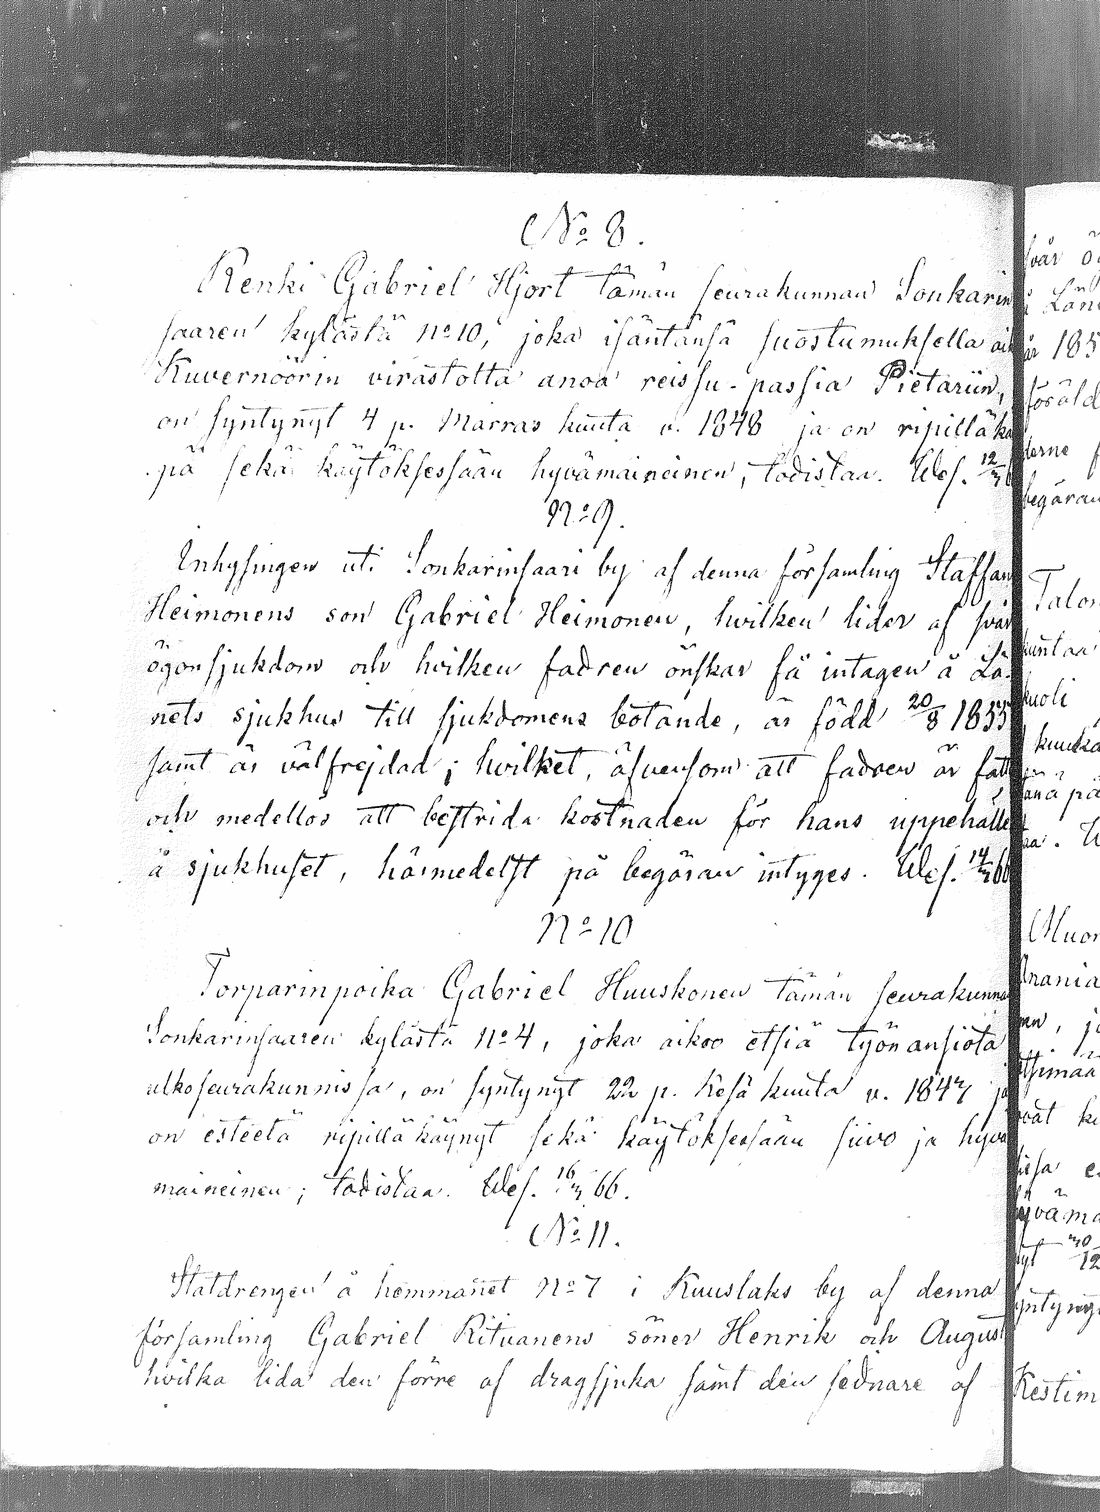 No 8.
Renki Gabriel Hjort tämän seurakunnan Sonkarin
saaren kylästä No 10, joka isäntänsä suostumuksella ai
Kuvernöörin virastolta anoa reissu-passia Pietariin,
on syntynyt 4 p. Marras kuuta v. 1848 ja on ripilläkä
pä sekä käytöksessään hyvämaineinen, todistaa. Wes. 12/3 6
No 9.
Inhysingen uti Sonkarinsaari by af denna församling Staffan
Heimonens son Gabriel Heimonen, hvilken lider af svår
ögonsjukdom och hvilken fadren önskar få intagen å Lä-
nets sjukhus till sjukdomens botande, är född 20/8 1855
samt är välfrejdad; hvilket, äfvensom att fadren är fatt
och medellös att bestrida kostnaden för hans uppehälle
å sjukhuset, härmedelst på begäran intyges. Wes. 14/3 66
No 10
Torparinpoika Gabriel Huuskonen tämän seurakunna
Sonkarinsaaren kylästä No 4, joka aikoo etsiä työnansiota
ulkoseurakunnissa, on syntynyt 22 p. Kesä kuuta v. 1847 ja
on esteetä ripilläkäynyt sekä käytöksessään siivo ja hyvä
maineinen; todistaa. Wes. 16/3 66.
No 11.
Statdrengen å hemmanet No 7 i Kuuslaks by af denna
församling Gabriel Rituanens söner Henrik och August
hvilka lida den förre af dragsjuka samt den sednare af
svår
Län
år 185
föräld
derne
begäran
Talon
kuntaa
kuoli
kuuka
Muon
Anania
Kestim